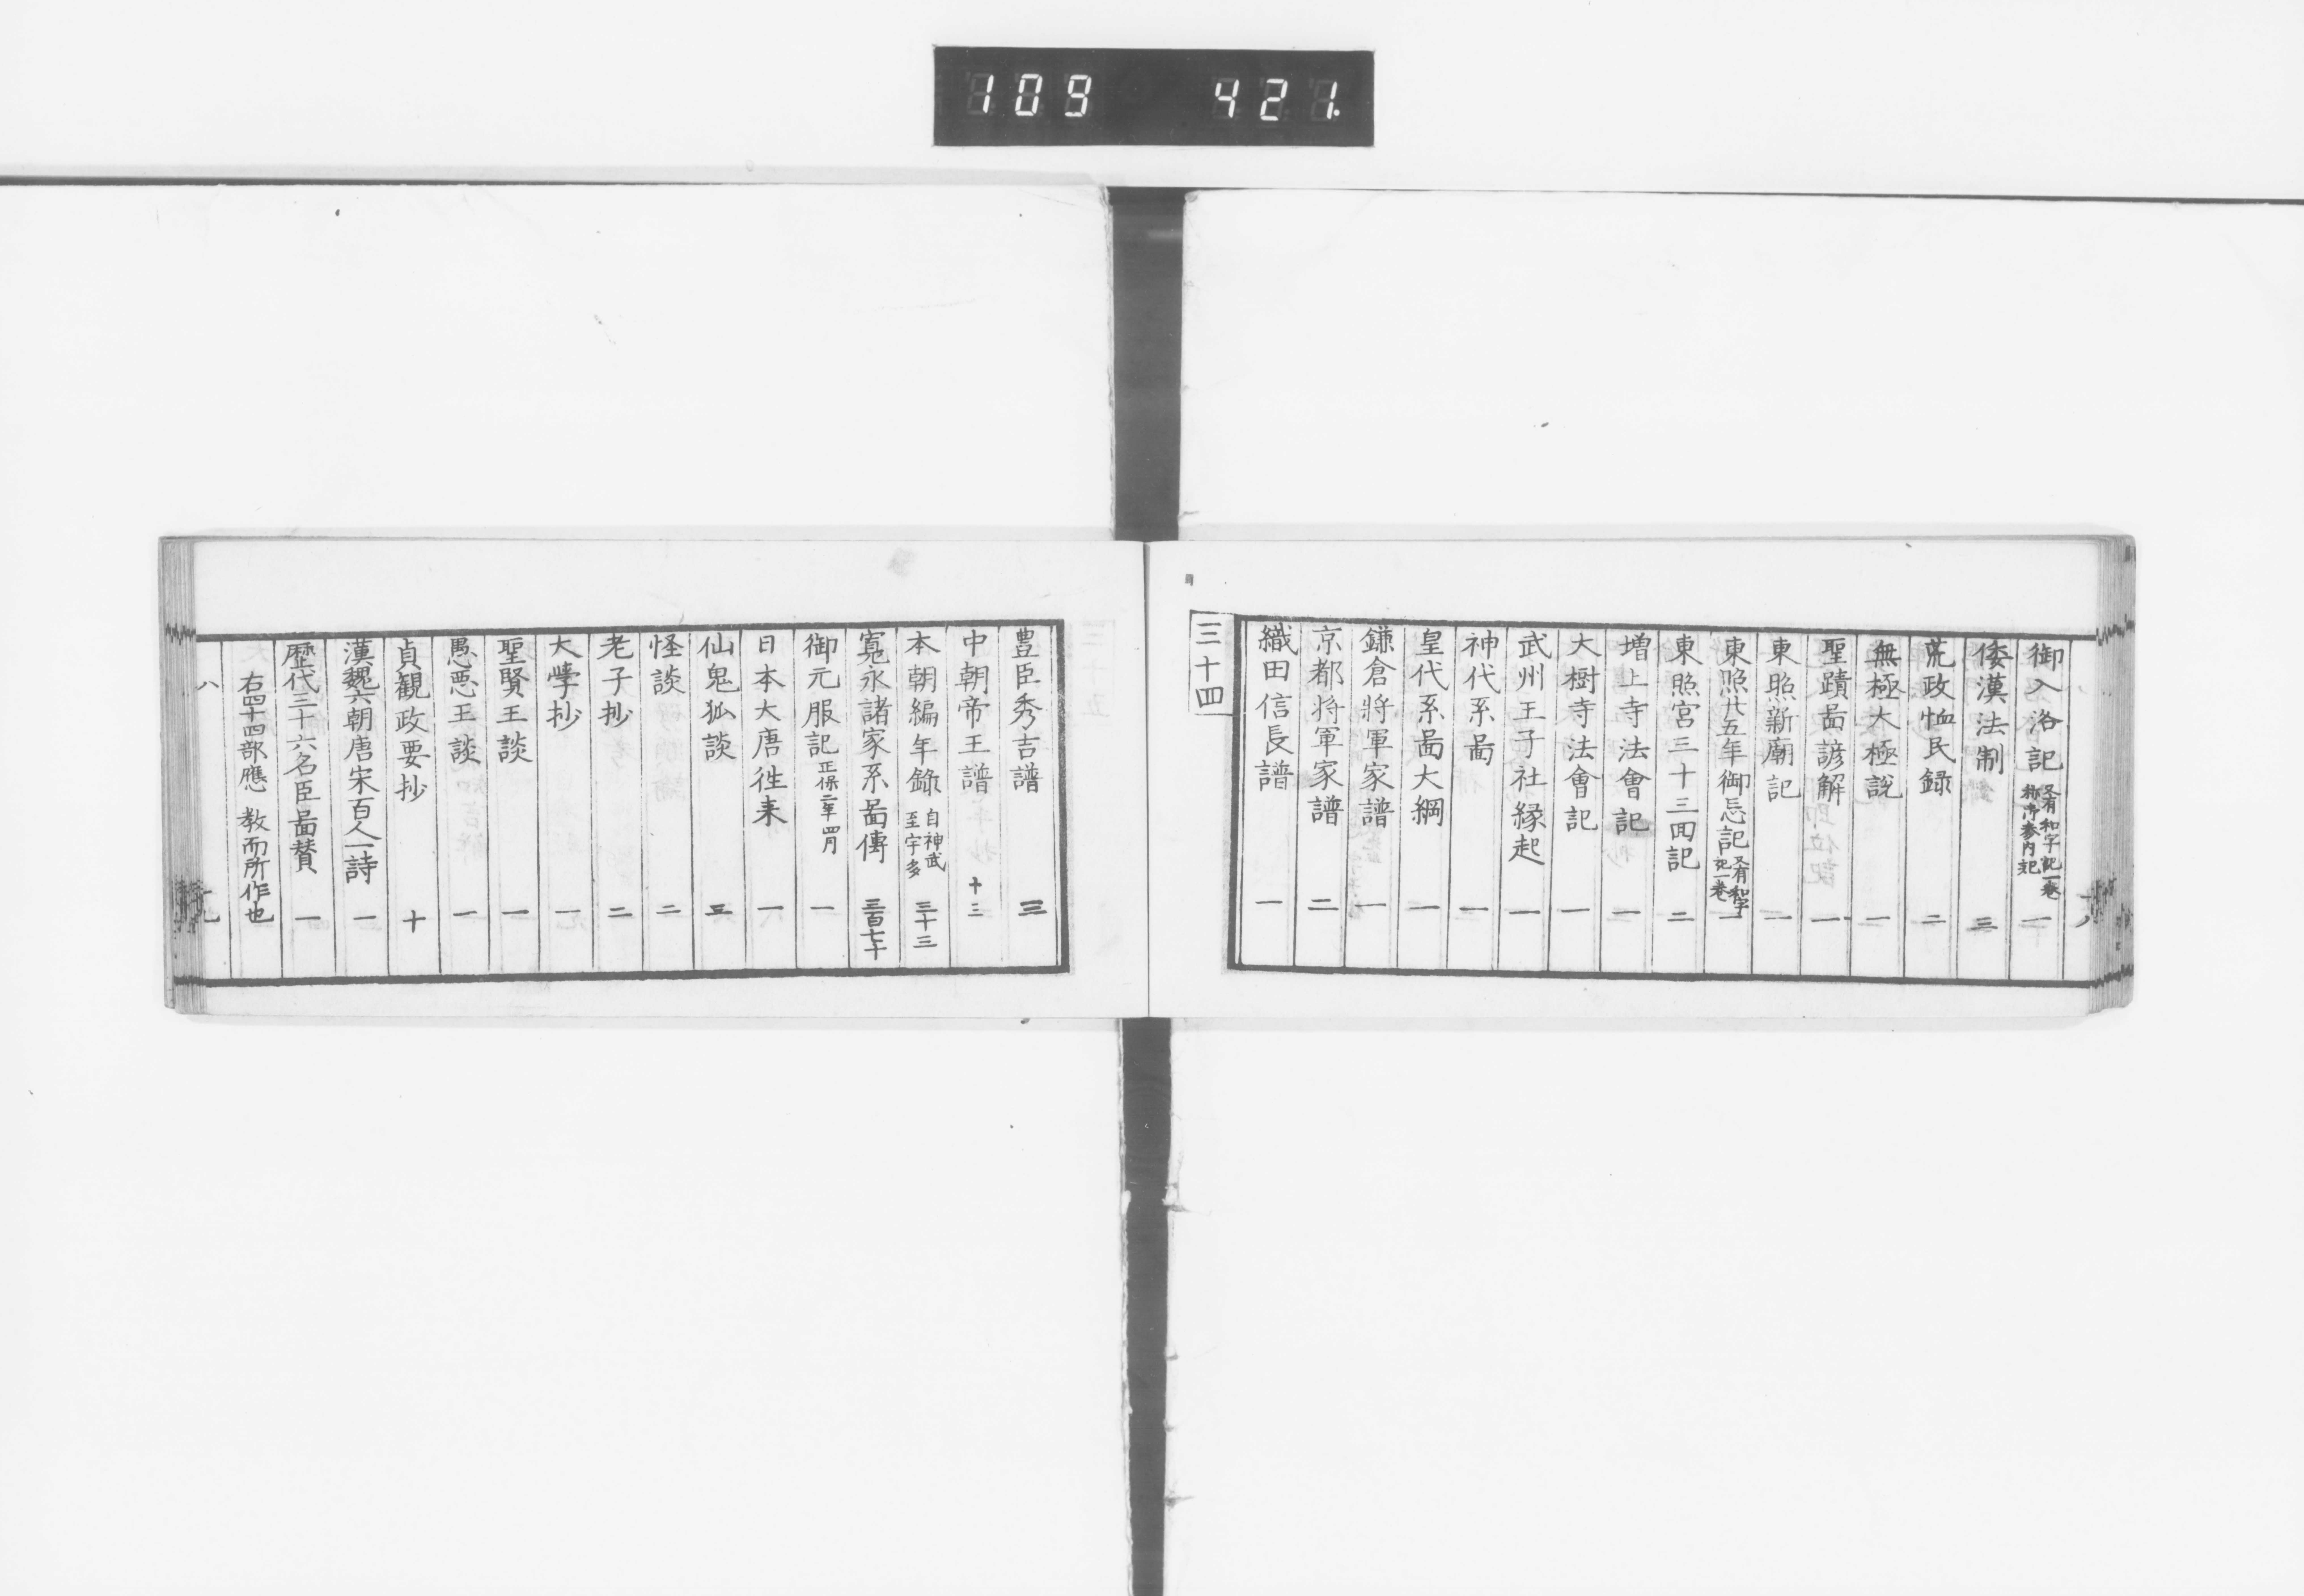 109 421.
御入洛記 又有和字記一巻 称御参内記 一
倭漢法制 三
荒政恤民録 二
無極大極説 一
聖蹟啚諺解 一
東照新廟記 一
東照廿五年御忌記 又有和字記一巻 一
東照宮三十三囘記 二
増上寺法會記 一
大樹寺法會記 一
武州王子社縁起 一
神代系啚 一
皇代系啚大綱 一
鎌倉將軍家譜 一
京都将軍家譜 二
織田信長譜 一
三十四
豊臣秀吉譜 三
中朝帝王譜 十三
本朝編年錄 自神武至宇多 三十三
寛永諸家系啚傳 三百七十
御元服記 正保二年四月 一
日本大唐徃来 一
仙鬼狐談 三
怪談 二
老子抄 二
大學抄 一
聖賢王談 一
愚悪王談 一
貞観政要抄 十
漢魏六朝唐宋百人一詩 一
歴代三十六名臣啚賛 一
右四十四部應 教而所作也
八